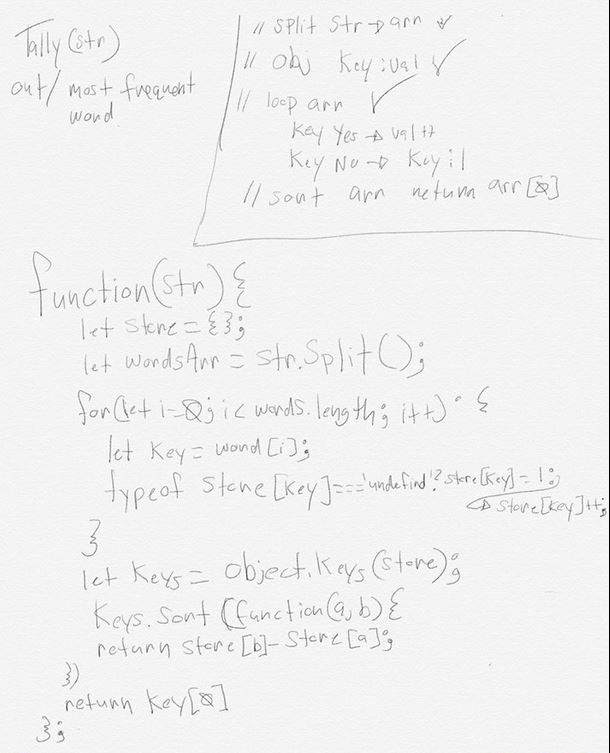 Tally(str)
out/ most frequent
word
// split str → arr ✓
// obj key:val ✓
// loop arr ✓
key yes → val++
key No → key:1
// sort arr return arr[0]
function(str) {
let store = {};
let wordsArr = str.split();
for(let i=0; i < words.length; i++) {
let key = word[i];
typeof store[key]==='undefind'? store[key]=1:
→ store[key]++;
}
let keys = object.keys(store);
keys.sort (function(a,b) {
return store[b]-store[a];
})
return key[0]
};